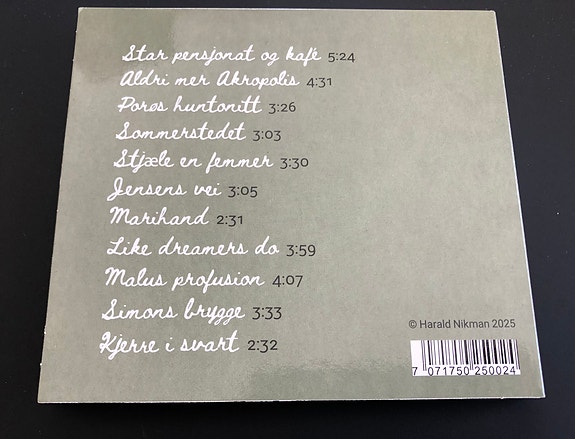 Star pensjonat og kafé 5:24
Aldri mer Akropolis 4:31
Porøs huntonitt 3:26
Sommerstedet 3:03
Stjæle en femmer 3:30
Jensens vei 3:05
Marihand 2:31
Like dreamers do 3:59
Malus profusion 4:07
Simons brygge 3:33
Kjerre i svart 2:32
© Harald Nikman 2025
7 071750 250024